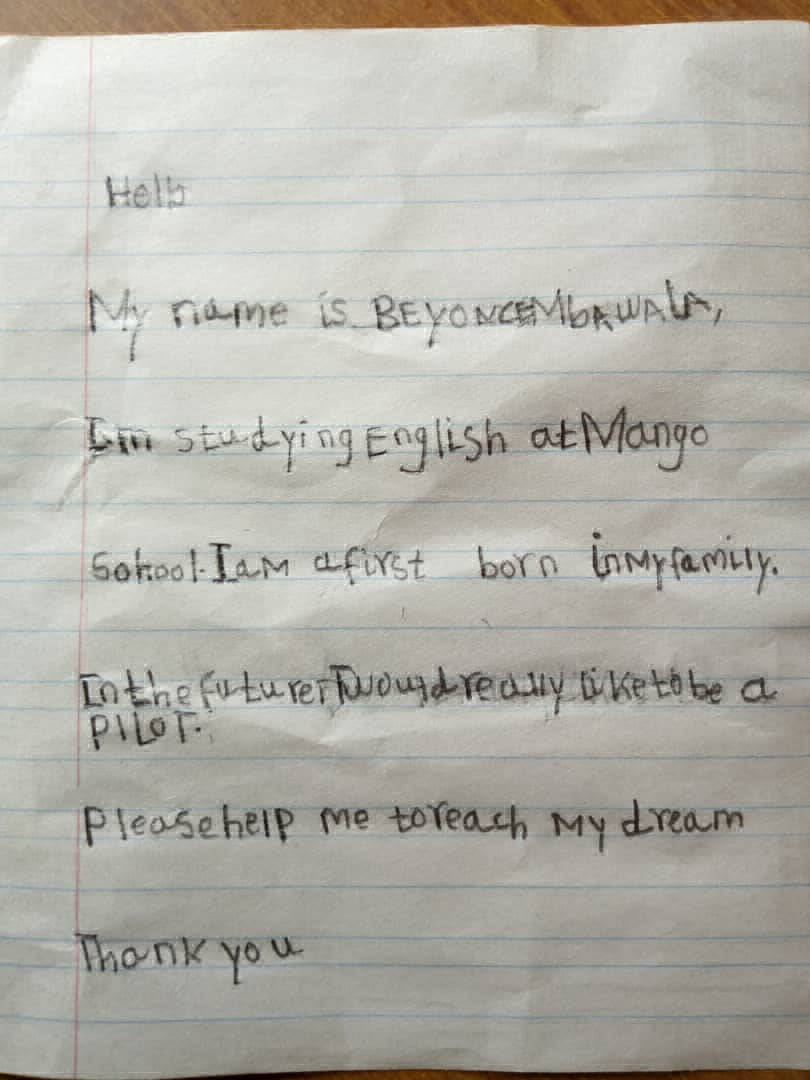 Hello
My name is BEYONCE MbAWALA,
I'm studying English at Mango
School. I aM a first born in My family.
In the future, I would really like to be a
PILOT.
please help me to reach My dream
Thank you